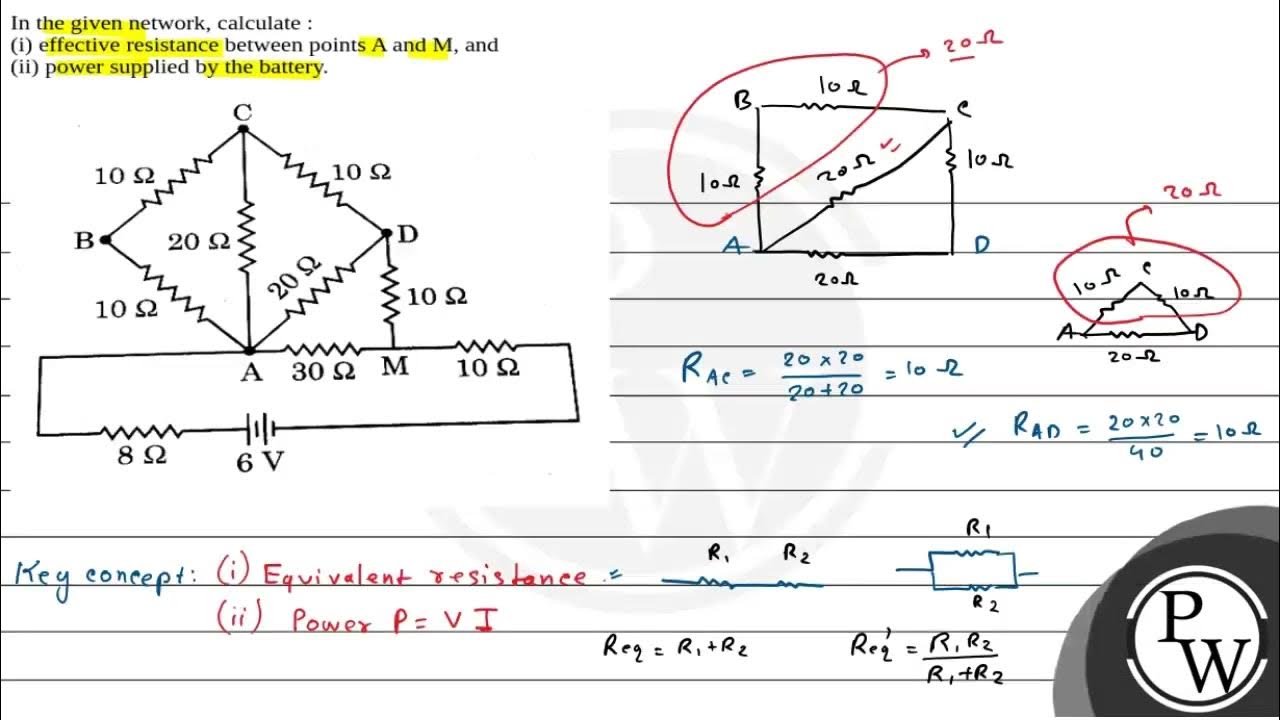 In the given network, calculate :
(i) effective resistance between points A and M, and
(ii) power supplied by the battery.
C
10 Ω
10 Ω
B
20 Ω
20 Ω
D
10 Ω
10 Ω
A
30 Ω
M
10 Ω
8 Ω
6 V
20 Ω
B
10 Ω
C
10 Ω
20 Ω
10 Ω
A
20 Ω
D
20 Ω
10 Ω
C
10 Ω
A
D
20 Ω
R_AC = 20 × 20 / 20 + 20 = 10 Ω
R_AD = 20 × 20 / 40 = 10 Ω
Key concept: (i) Equivalent resistance :=
(ii) Power P = V I
R₁ R₂
R₁
R₂
Req = R₁ + R₂
Req' = R₁ R₂ / R₁ + R₂
P
W